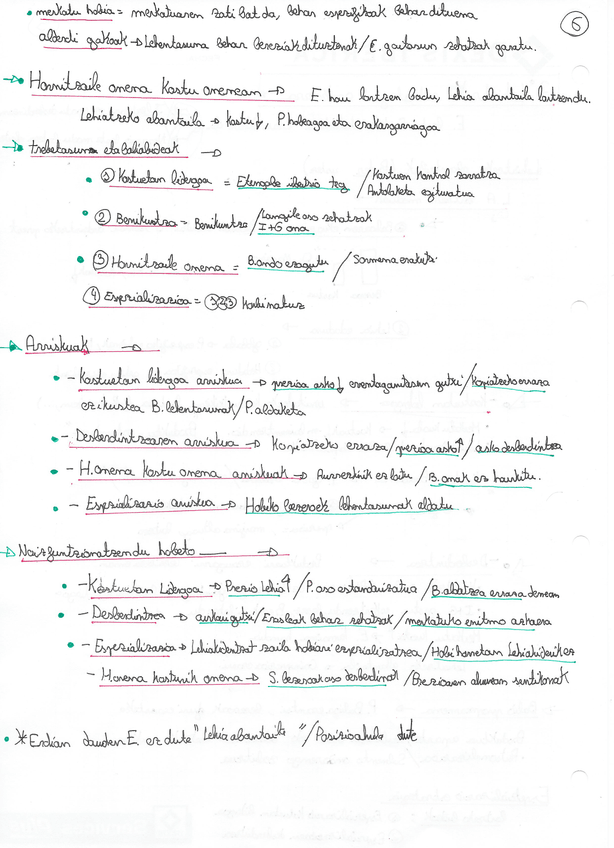 • merkatu hobia = merkatuaren zati bat da, behar espezifikoak behar dituena
5
alderdi gakoak → Lehentasuna behar bereziak dituztenak / E. gaitasun zehatzak garatu.
→ Hornitzaile onena kostu onenean → E. hau lortzen badu, Lehia abantaila lortzen du.
Lehiatzeko abantaila → kostu↓, P. hobeagoa eta erakargarriagoa
→ trebetasuna eta baliabideak →
• ① Kostuetan lidergoa = Etengabe ibertsio teg / Kostuen kontrol zorrotza
Antolaketa egituratua
• ② Berrikuntza = Berrikuntza / Langile oso zehatzak
I+G ona
• ③ Hornitzaile onena = B. ondo ezagutu / Sormena erakutsi
④ Espezializazioa = ①②③ Konbinatuz
→ Arriskuak →
• - Kostuetan lidergoa arriskua → prezioa asko↓ errentagarritasun gutxi / Kopiatzeko erraza
ez ikustea B. lehentasunak / P. aldaketa
• - Desberdintzearen arriskua → Kopiatzeko erraza / prezioa asko↑ / asko desberdintzea
• - H. onena kostu onena arriskuak → Aurrerkirik ez baitu / B. onak ez haukitu.
• - Espezializazio arriskua → Hobeto bezeroek lehentasunak aldatu
→ Noiz funtzionatzen du hobeto →
• - Kostuetan Lidergoa → Prezio Lehia↑ / P. oso estandarizatua / B. aldatzea erraza denean
• - Desberdintzea → aurkari gutxi / Erosleak behar zehatzak / merkatuko erritmo azkarra
• - Espezializazioa → Lehiakidentzat zaila hobian espezializatzea / Hobi honetan Lehiakiderik ez
- H onena kosturik onena → S. bezeroak oso desberdinak / Prezioaren aurrean sentikorrak
• * Erdian dauden E. ez dute "Lehia abantaila" / Posizio ahula dute